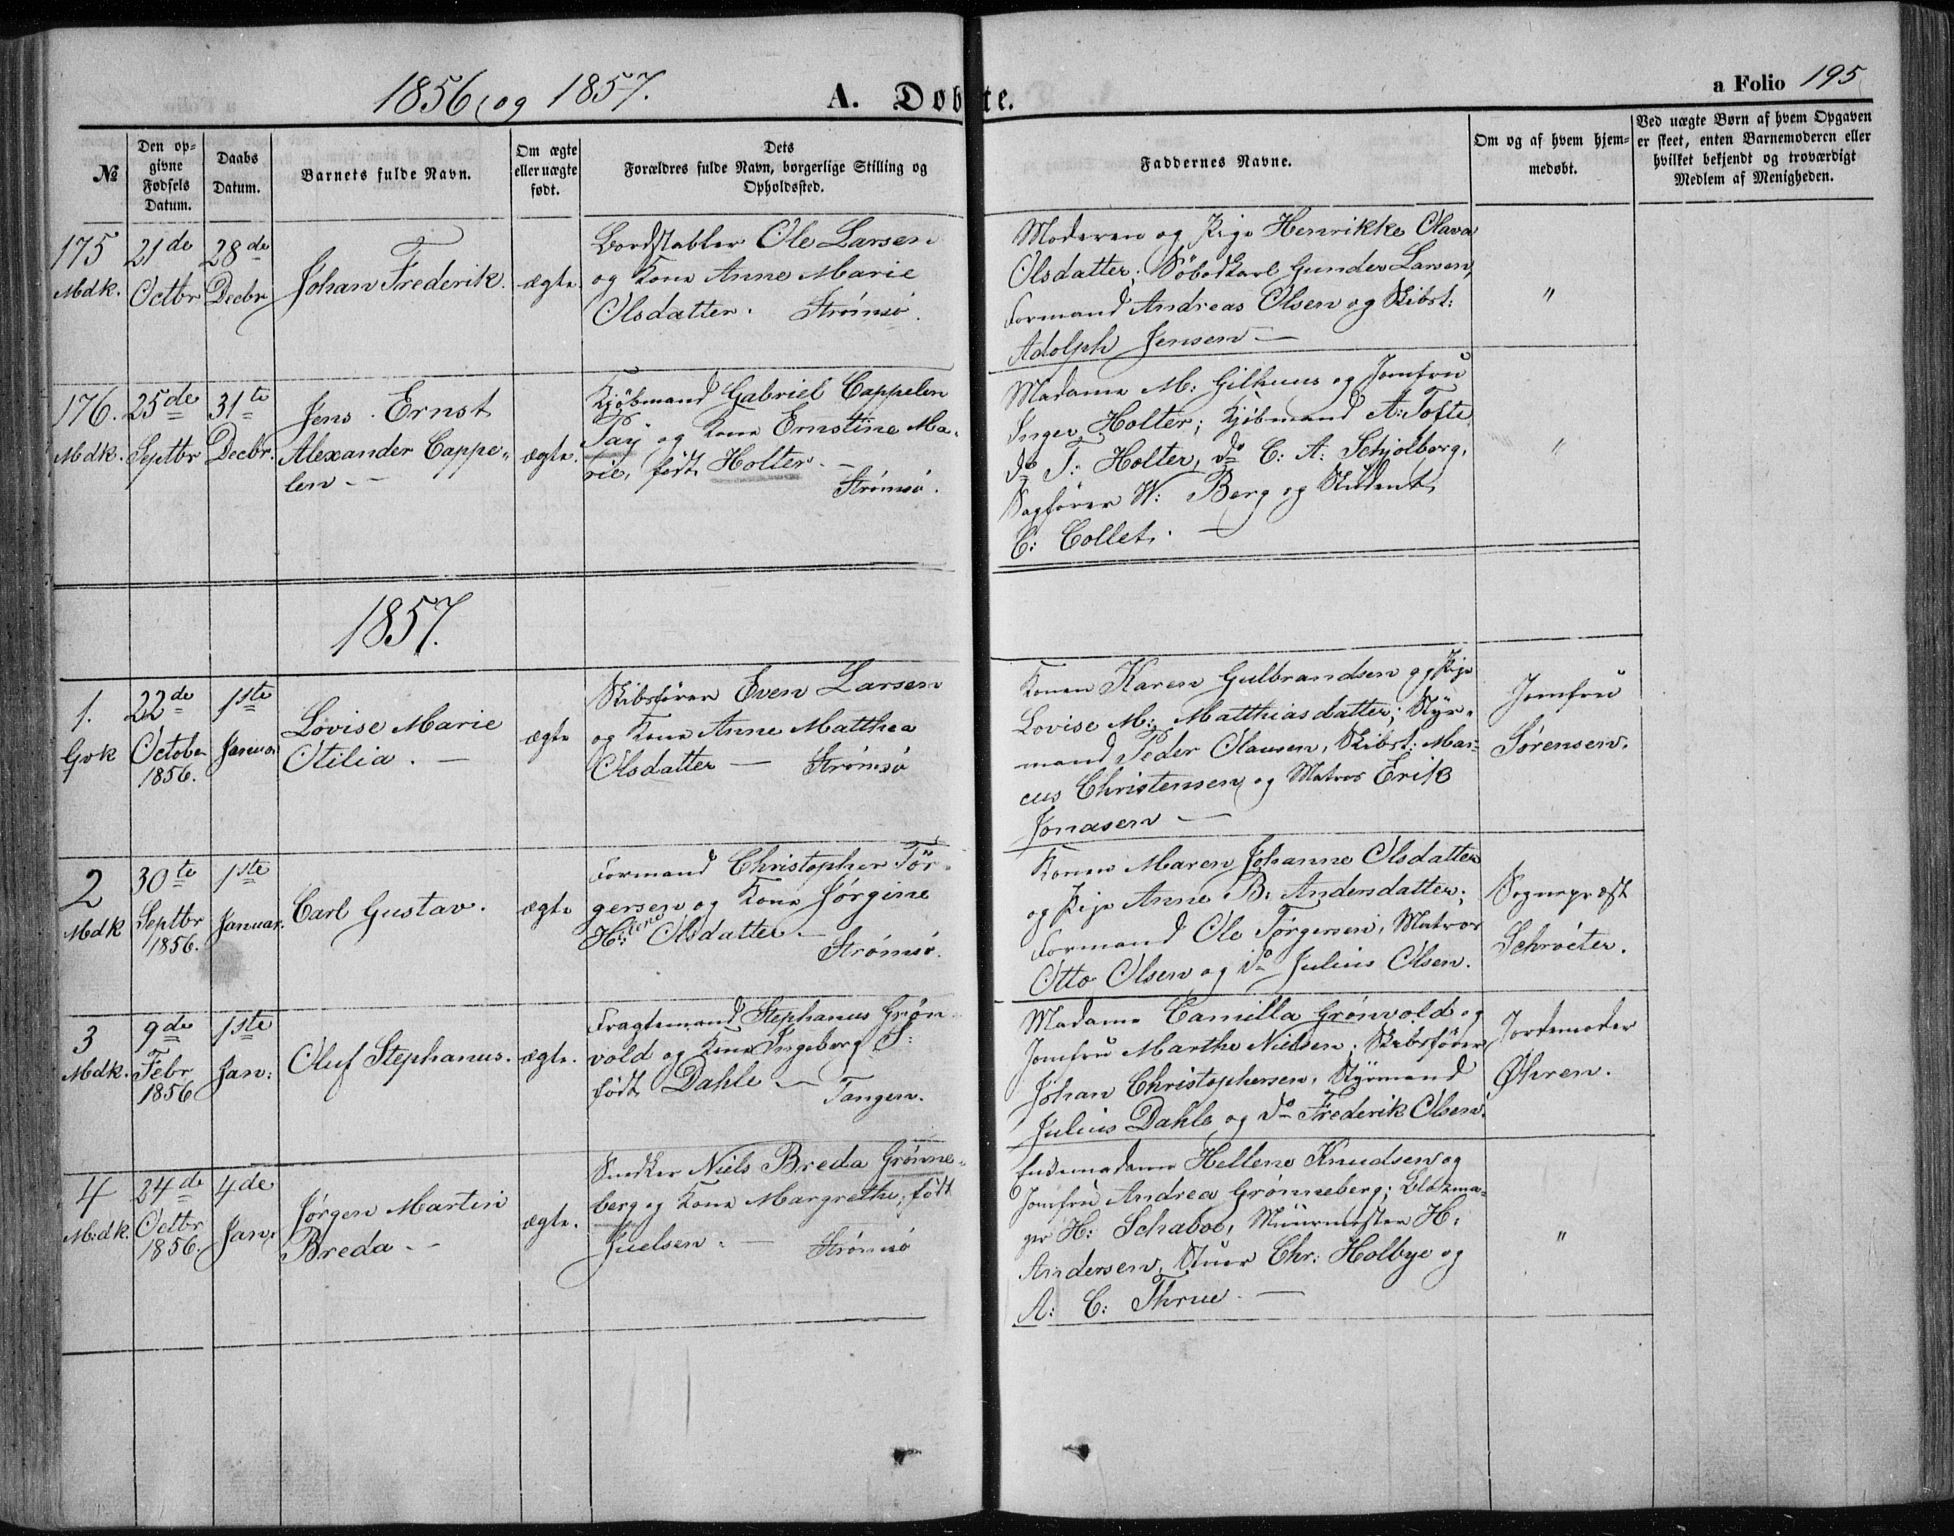 1856 og 1857.
A. Døbte.
a Folio 195
№
Den op-
givne
Fødsels
Datum.
Daabs
Datum.
Barnets fulde Navn.
Om ægte
eller uægte
født.
Dets
Forældres fulde Navn, borgerlige Stilling og
Opholdssted.
Faddernes Navne.
Om og af hvem hjem-
medøbt.
Ved uægte Børn af hvem Opgaven
er skeet, enten Barnemoderen eller
hvilket bekjendt og troværdigt
Medlem af Menigheden.
175
Mdk.
21de
Octbr
28de
Decbr
Johan Frederik.
ægte.
Bordstabler Ole Larsen
og Kone Anne Marie
Olsdatter. Strømsö.
Moderen og Pige Henrikke Olava
Olsdatter; Söbodkarl Gunder Larsen,
Formand Andreas Olsen og Skibst:
Adolph Jensen —
"
176.
Mdk.
25de
Septbr
31te
Decbr.
Jens Ernst
Alexander Cappe-
len. —
ægte.
Kjöbmand Gabriel Cappelen
Pay og Kone Ernstine Ma-
rie, födt Holter. —
Strømsö.
Madame M: Gilhuus og Jomfru
Inger Holter; Kjöbmand A: Tofte
do T: Holter, do C: A: Schjolberg,
Sagförer W: Berg og Student
C: Collet. —
"
1857.
1.
Gvk
22de
October
1856.
1ste
Januar
Lovise Marie
Otilia. —
ægte
Skibsförer Even Larsen
og Kone Anne Matthea
Olsdatter — Strømsö
Konen Karen Gulbrandsen og Pige
Lovise M: Matthiasdatter; Styr-
mand Peder Olausen, Skibst: Mar-
cus Christensen og Matros Erik
Jonasen —
Jomfru
Sørensen.
2
Mdk
30te
Septbr
1856.
1ste
Januar.
Carl Gustav.
ægte
Formand Christopher Tör-
gersen og Kone Jørgine
H: Olsdatter. —
Strømsö.
Konen Maren Johanne Olsdatter
og Pige Anne B: Andersdatter;
Formand Ole Törgersen, Matros
Otto Olsen og do Julius Olsen.
Sognepræst
Schröeter.
3
Mdk.
9de
Febr
1856
1ste
Jan:
Oluf Stephanus.
ægte.
Fragtemand Stephanus Grøn-
vold og Kone Ingeborg S:
födt Dahle — Tangen.
Madame Camilla Grönvold og
Jomfru Marthe Nielsen; Skibsförer
Johan Christophersen, Styrmand
Julius Dahle og do Frederik Olsen.
Jordemoder
Øhren.
4
M:dk.
24de
Octbr
1856.
4de
Jan:
Jørgen Martin
Breda. —
ægte.
Snedker Niels Breda Grønne-
berg og Kone Margrethe, födt
Juelsen. — Strømsö
Enkemadame Hellene Knudsen og
Jomfru Andrea Grönneberg; Blokma-
ger H: Schaboe, Muurmester H:
Andersen, Stuer Chr: Holbye og
A: C: Thrue. —
"